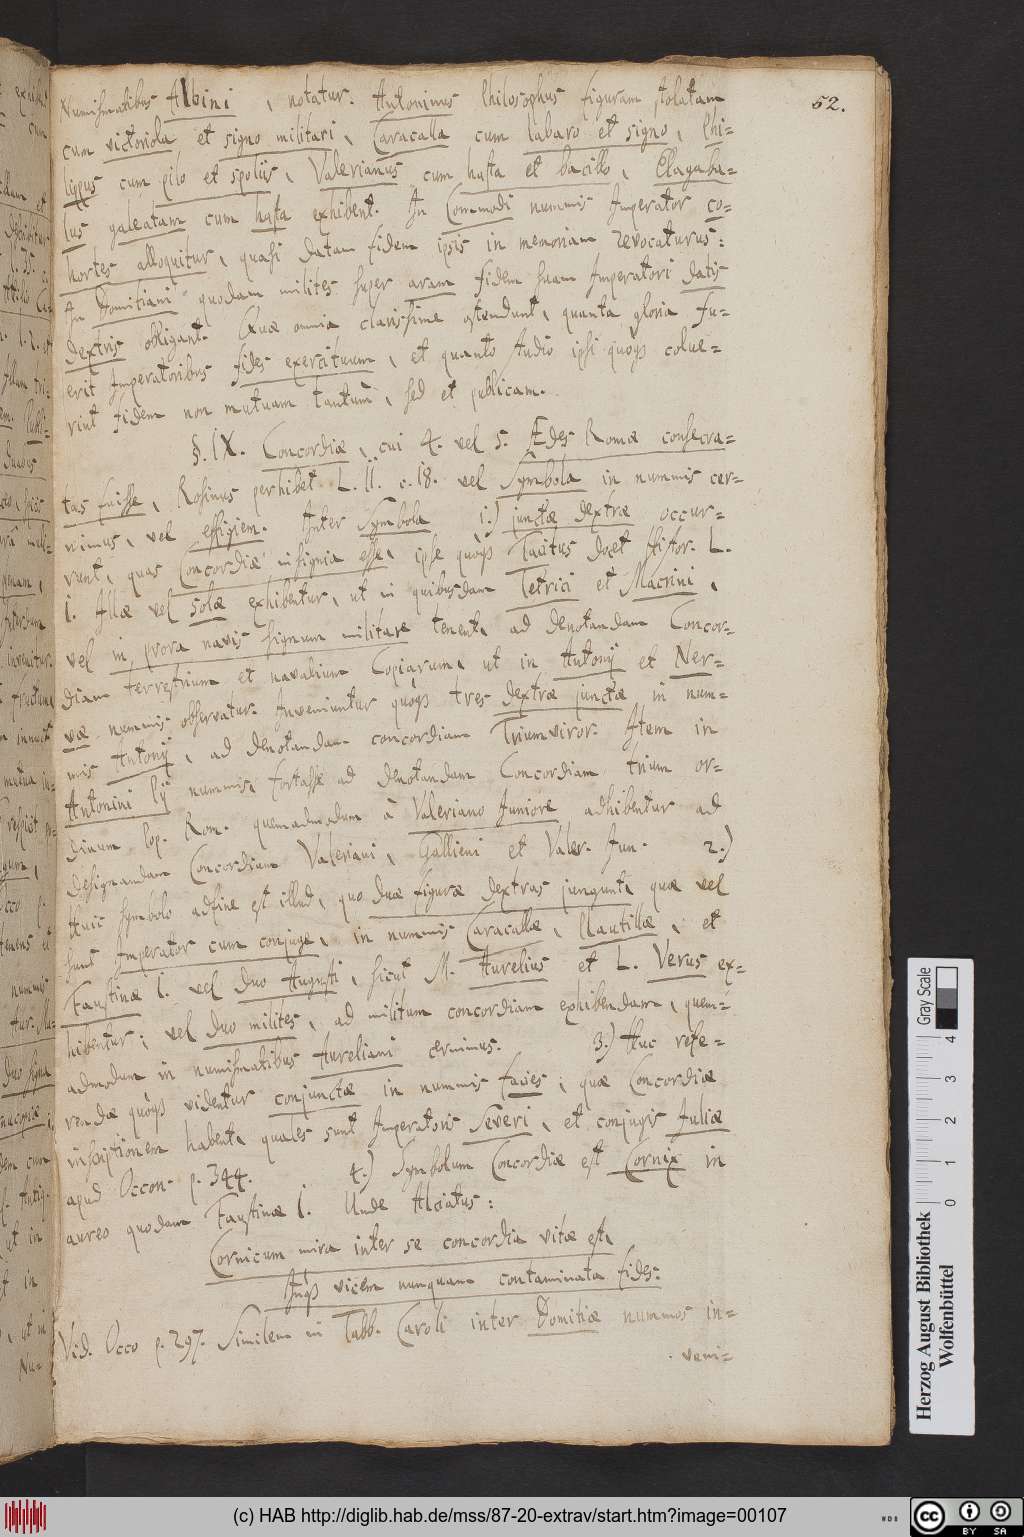 52.
Numismatibus Albini, notatur. Antoninus Philosophus figuram stolatam
cum victoriola et signo militari, Caracalla cum labaro et signo, Phi=
lippus cum pilo et spoliis, Valerianus cum hasta et bacillo, Elagaba=
lus galeatam cum hasta exhibent. In Commodi nummis Imperator co=
hortes alloquitur, quasi datam fidem ipsis in memoriam revocaturus:
In Domitiani quodam milites super aram fidem suam Imperatori datis
dextris obligant. Quæ omnia clarissime ostendunt, quanta gloria fu=
erit Imperatoribus fides exercituum, et quanto studio ipsi quoqs colue=
rint fidem non mutuam tantùm, sed et publicam.
§. IX. Concordiæ, cui 4. vel 5. Ædes Romæ consecra=
tas fuisse, Rosinus perhibet L. II. c. 18. vel Symbola in nummis cer=
nimus, vel effigiem. Inter Symbola 1.) junctæ dextræ occur=
runt, quas Concordiæ insignia esse, ipse quoqs Tacitus docet Histor. L.
1. Illæ vel solæ exhibentur, ut in quibusdam Tetrici et Macrini,
vel in prora navis signum militare tenent, ad denotandam Concor=
diam terrestrium et navalium Copiarum, ut in Antonij et Ner=
væ nummis observatur. Inveniuntur quoqs tres dextræ junctæ in num=
mis Antonij, ad denotandam concordiam Triumviror. Item in
Antonini Pij nummis, fortasse ad denotandam Concordiam trium or=
dinum Pop. Rom. quemadmodum à Valeriano Juniore adhibentur ad
designandam Concordiam Valeriani, Gallieni et Valer. Jun. 2.)
Huic symbolo adfine est illud, quo duæ figuræ dextras jungunt, quæ vel
sunt Imperator cum conjuge, in nummis Caracallæ, Plautillæ, et
Faustinæ I. vel duo Augusti, sicut M. Aurelius et L. Verus ex=
hibentur; vel duo milites, ad militum concordiam exhibendam, quem=
admodum in numismatibus Aureliani cernimus. 3.) Huc refe=
rendæ quoqs videntur conjunctæ in nummis facies, quæ Concordiæ
inscriptionem habent, quales sunt Imperatoris Severi, et conjugis Juliæ
apud Occon. p. 344. 4.) Symbolum Concordiæ est Cornix in
aureo quodam Faustinæ I. Unde Alciatus:
Cornicum mira inter se concordia vitæ est,
Inqs vicem nunquam contaminata fides.
Vid. Occo p. 297. Similem in Tabb. Caroli inter Domitiæ nummos in=
veni=
Herzog August Bibliothek
Wolfenbüttel
Gray Scale
0 1 2 3 4
(c) HAB http://diglib.hab.de/mss/87-20-extrav/start.htm?image=00107
cc BY SA